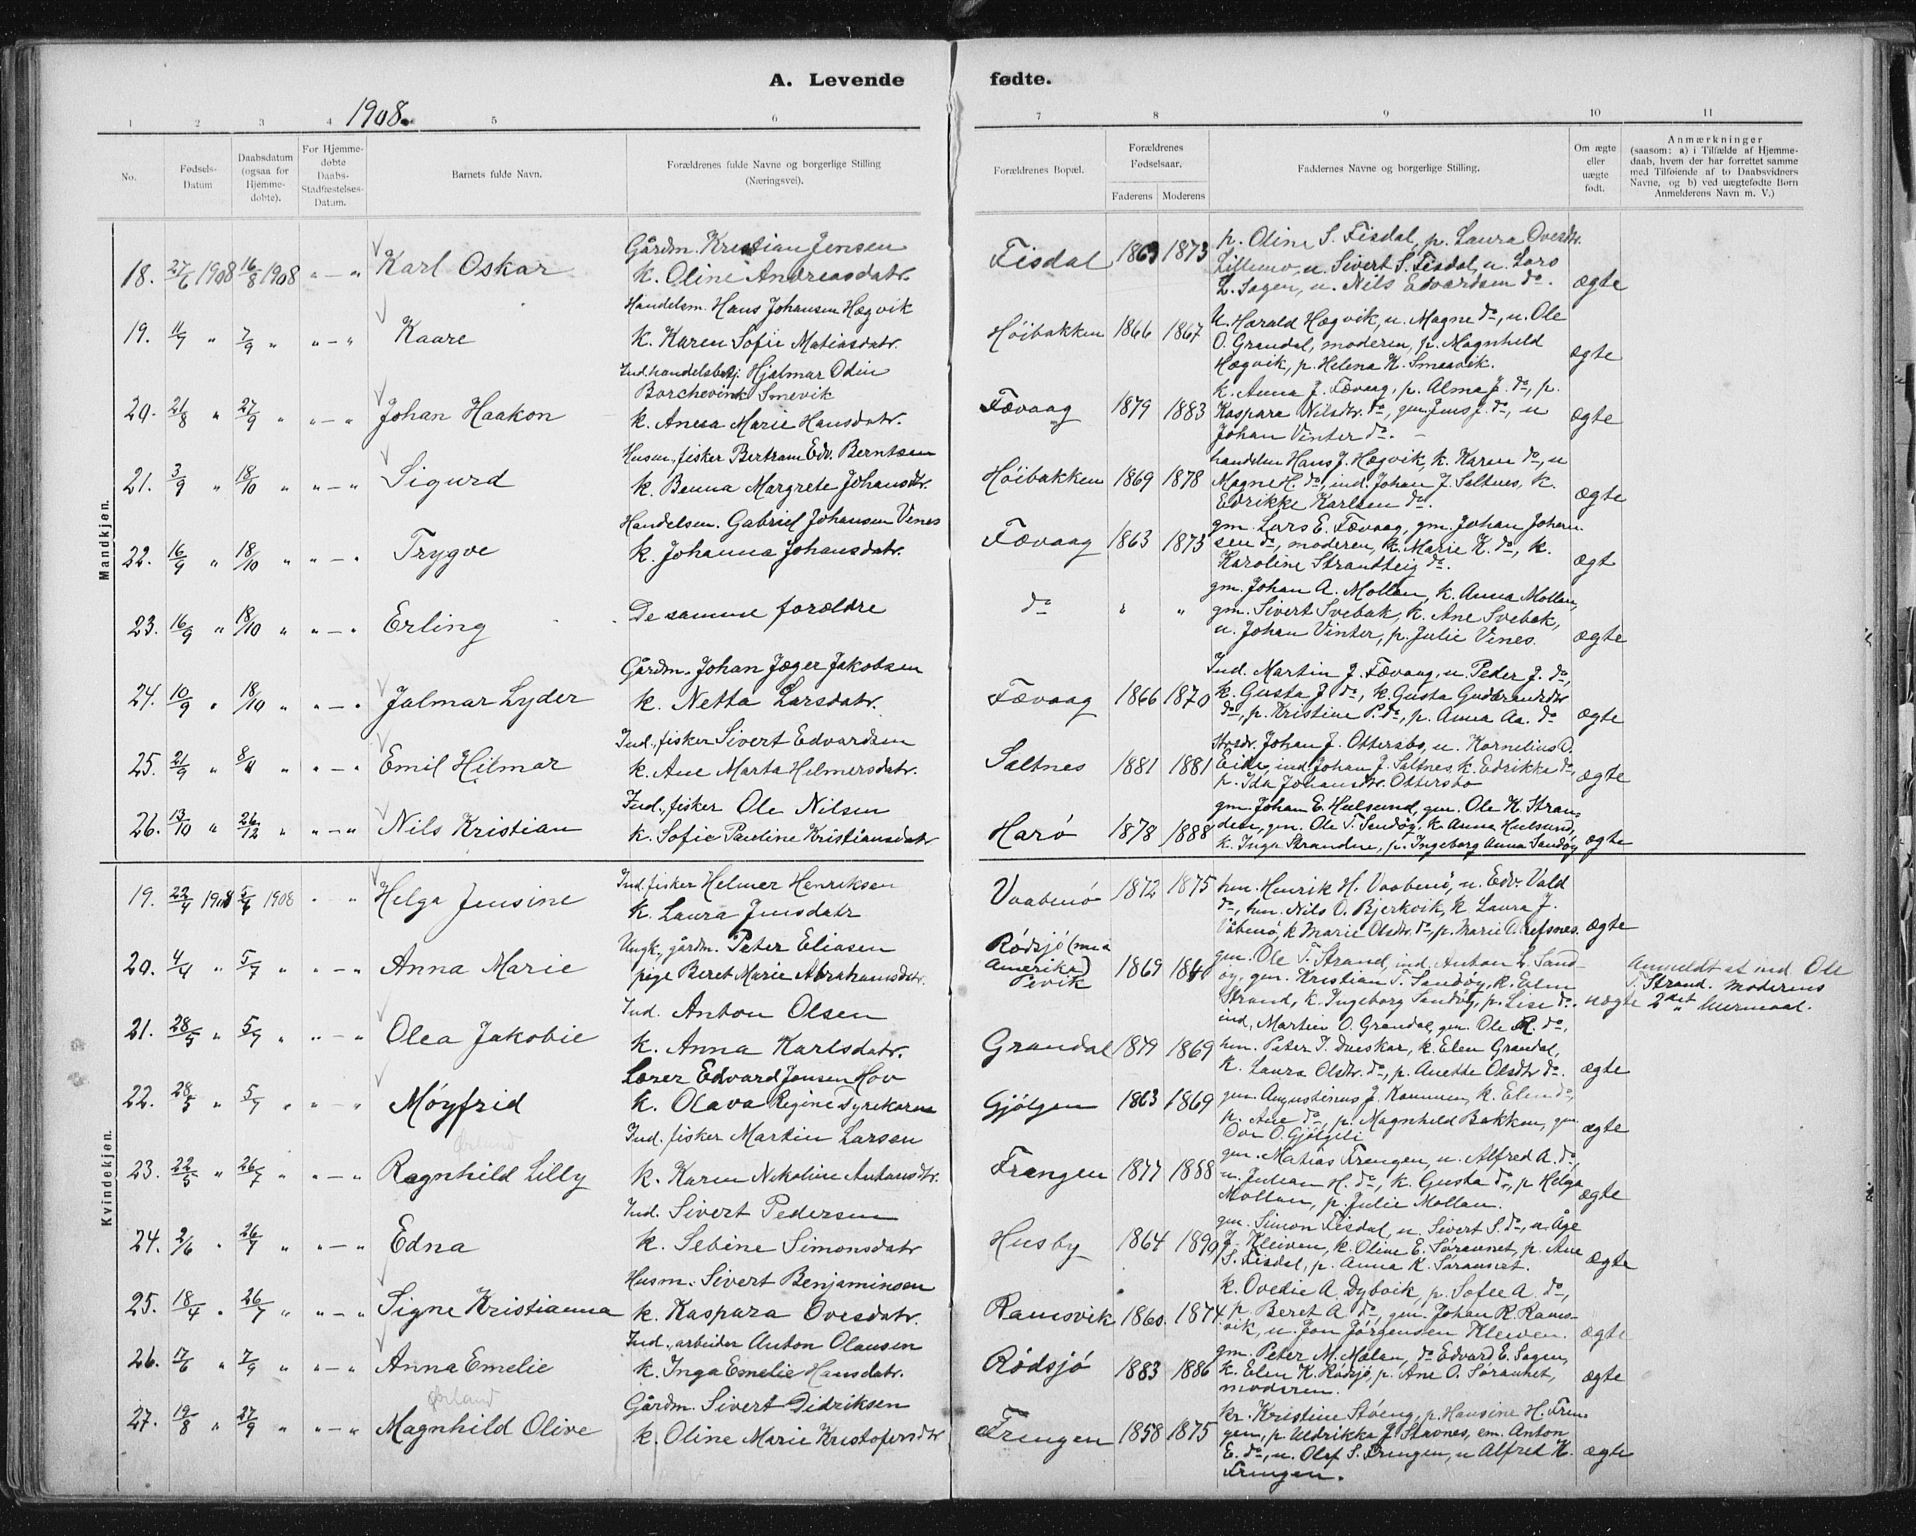 A. Levende fødte.
1908.
1 2 3 4 5 6 7 8 9 10 11
No.
Fødsels-
Datum
Daabsdatum
(ogsaa for
Hjemme-
døbte).
For Hjemme-
døbte
Daabs-
Stadfæstelses-
Datum.
Barnets fulde Navn.
Forældrenes fulde Navne og borgerlige Stilling
(Næringsvei).
Forældrenes Bopæl.
Forældrenes
Fødselsaar.
Faderens Moderens
Faddernes Navne og borgerlige Stilling.
Om ægte
eller
uægte
født.
Anmærkninger
(saasom: a) i Tilfælde af Hjemme-
daab, hvem der har forrettet samme
med Tilføiende af to Daabsvidners
Navne, og b) ved uægtefødte Børn
Anmelderens Navn m. V.)
Mandkjøn.
18. 27/6 1908 16/8 1908 " — " Karl Oskar
Gårdm. Kristian Jensen
k. Oline Andreasdatr.
Fisdal 1863 1873
p. Oline S. Fisdal, p. Laura Ovesdtr.
u. Sivert S. Fisdal, u. Lars
L. Sagen, u. Nils Edvardsen do.
ægte
19. 11/7 " 7/9 " " — " Kaare
Handelsm. Hans Johansen Hægvik
k. Karen Sofie Matiasdatr.
Høibakken 1866 1867
U. Harald Hægvik, u. Magne do, u. Ole
O. Grandal, moderen, p. Magnhild
Hægvik, p. Helena K. Smeavik.
ægte
20. 21/8 " 27/9 " " — " Johan Haakon
Ind. handelsbetj. Hjalmar Odin
Borchevink Smevik
k. Anna Marie Hansdatr.
Fævaag 1879 1883
k. Anna J. Fævaag, p. Alma J. do, p.
Kaspara Nilsdtr. do, gm. Jens J. do, u
Johan Vinter do.
ægte
21. 3/9 " 18/10 " " — " Sigurd
Husm., fisker Bertram Edv. Berntsen
k. Benna Margrete Johansdtr.
Høibakken 1869 1878
handelsm Hans J. Hægvik, k. Karen do, u
Magne H. do, ind. Johan J. Saltnes, k.
Edrikke Karlsen do.
ægte
22. 16/9 " 18/10 " " — " Trygve
Handelsm. Gabriel Johansen Vines
k. Johanna Johansdatr.
Fævaag 1863 1873
gm. Lars E. Fævaag, gm. Johan Johan-
sen do, moderen, k. Marie K. do, k.
Karoline Strandteig do.
ægt
23. 16/9 " 18/10 " " — " Erling
De samme forældre
do " "
gm. Johan A. Mollan, k. Anna Mollan,
gm. Sivert Svebak, k. Ane Svebak,
u. Johan Vinter, p. Julie Vines.
ægte
24. 10/9 " 18/10 " " — " Jalmar Lyder
Gårdm. Johan Jæger Jakobsen
k. Netta Larsdatr.
Fævaag 1866 1870
Ind. Martin J. Fævaag, u. Peder J. do,
k. Gusta J. do, k. Gusta Gudbrandsdtr
do, p. Kristine P. do, p. Anna Aa. do
ægte
25. 21/9 " " " — " Emil Hilmar
Ind., fisker Sivert Edvardsen
k. Ane Marta Hilmersdatr.
Saltnes 1881 1881
Johan J. Ottersbo, u. Kornelius O.
Eide, ind. Johan J. Saltnes, k. Edrikka do,
p. Ida Johansdtr. Ottersbo
ægte
26. 13/10 " 26/12 " " — " Nils Kristian
Ind., fisker Ole Nilsen
k. Sofie Pauline Kristiansdatr
Harö 1878 1888
gm. Johan E. Hulsund, gm. Ole K. Stran-
den, gm. Ole T. Sandøy, k. Anna Hulsund,
k. Inga Strandne, p. Ingeborg Anna Sandøy
ægte
Kvindekjøn.
19. 22/4 1908 5/7 1908 " " Helga Jensine
Ind. fisker Helmer Henriksen
k. Laura Jensdatr
Vaabenö 1872 1875
hm. Henrik H. Vaabenö, u. Edv. Vald
do, hm. Nils O. Bjerkvik, k. Laura J.
Våbenö, k Marie Olsdtr. do, p. Marie O. refsnes.
ægte
20. 4/4 " 5/7 " " — " Anna Marie
Ungk., gårdm. Peter Eliasen
pige Beret Marie Abrahamsdatr.
Rödsjö (nu i
Amerika)
Pevik
1869
gm. Ole T. Strand, ind. Anton L. Sand-
öy, gm. Kristian T. Sandöy, k. Elen
Strand, k. Ingeborg Sandöy, p. Lise do.
uægte
Anmeldt af ind Ole
T. Strand. Moderens
2det Leiermaal.
21. 28/5 " 5/7 " " — " Olea Jakobie
Ind. Anton Olsen
k. Anna Karlsdatr.
Grandal 1879 1869
ind, Martin O. Grandal, gm. Ole R. do,
hm. Peter T. k. Elen Grandal,
k. Laura Olsdtr. do, p. Anette Olsdtr do.
ægte
22. 28/5 " 5/7 " " — " Möyfrid
Lærer Edvard Jensen Hov
k. Olava Regine Dyrekarne
Gjölgen 1863 1869
gm. Augustinus J. k. Elen do
p. Ane do, p. Magnhild Bakken, gm.
Ove O. Gjölgeli
ægte
Ørland
23. 22/5 " 26/7 " " — " Ragnhild Lilly
Ind. fisker Martin Larsen
k. Karen Nikoline Antonsdtr.
Frengen 1877 1888
gm. Matias Frengen, u. Alfred A. do,
u. Julian H. do, k. Gusta do, p Helga
Mollan, p. Julie Mollan.
ægte
24. 2/6 " 26/7 " " — " Edna
Ind. Sivert Pedersen
k. Sebine Simonsdatr
Husby 1864 1890
gm. Simon Fisdal, u. Sivert S. do, u. Åge
J. Kleiven, k. Oline E. Søraunet, p. Ane
S. Fisdal, p. Anna K. Søraunet.
ægte
25. 18/4 " 26/7 " " — " Signe Kristianna
Husm. Sivert Benjaminsen
k. Kaspara Ovesdatr.
Ramsvik 1860. 1874.
k. Ovedie A. Dybvik, p. Sofie A. do,
p. Beret A do, gm. Johan R. Rams-
vik, u. Jon Jörgensen Kleiven.
ægte
26. 17/6 " 7/9 " " — " Anna Emelie
Ind., arbeider Anton Olausen
k. Inga Emelie Hansdatr.
Rödsjö 1883 1886
gm. Peter M. Malan, do Edvard E. Sagen,
k. Elen K. Rödsjö, p. Ane O. Søraunet,
moderen.
ægte
Ørland
27. 19/8 " 27/9 " " — " Magnhild Olive
Gårdm. Sivert Didriksen
k. Oline Marie Kristofersdtr
Frengen 1858 1875
kr. Kristine Støeng, p. Hansine H. Fren-
gen, p. Uldrikka J. Stavnes, em. Anton
E. do, u. Olaf S. Frengen, u Alfred K.
Frengen.
ægte